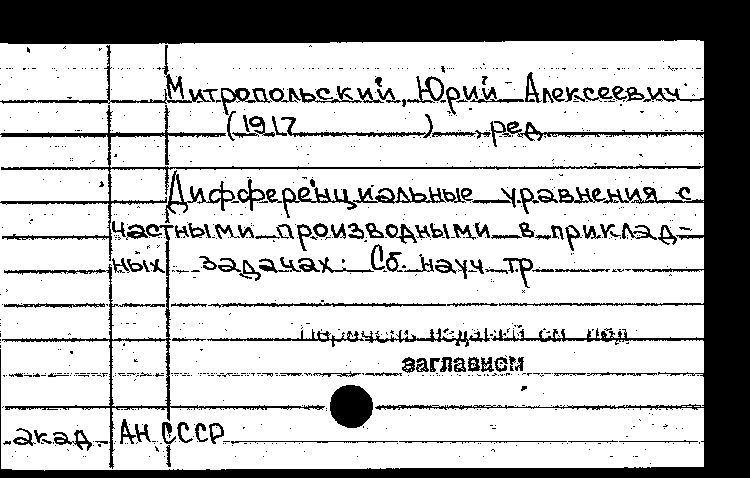 Митропольский, Юрий Алексеевич
(1917 ) , ред
Дифференциальные уравнения с
частными производными в приклад-
ных задачах: Сб. науч тр
Перечень изданий см под
заглавием
акад. АН СССР